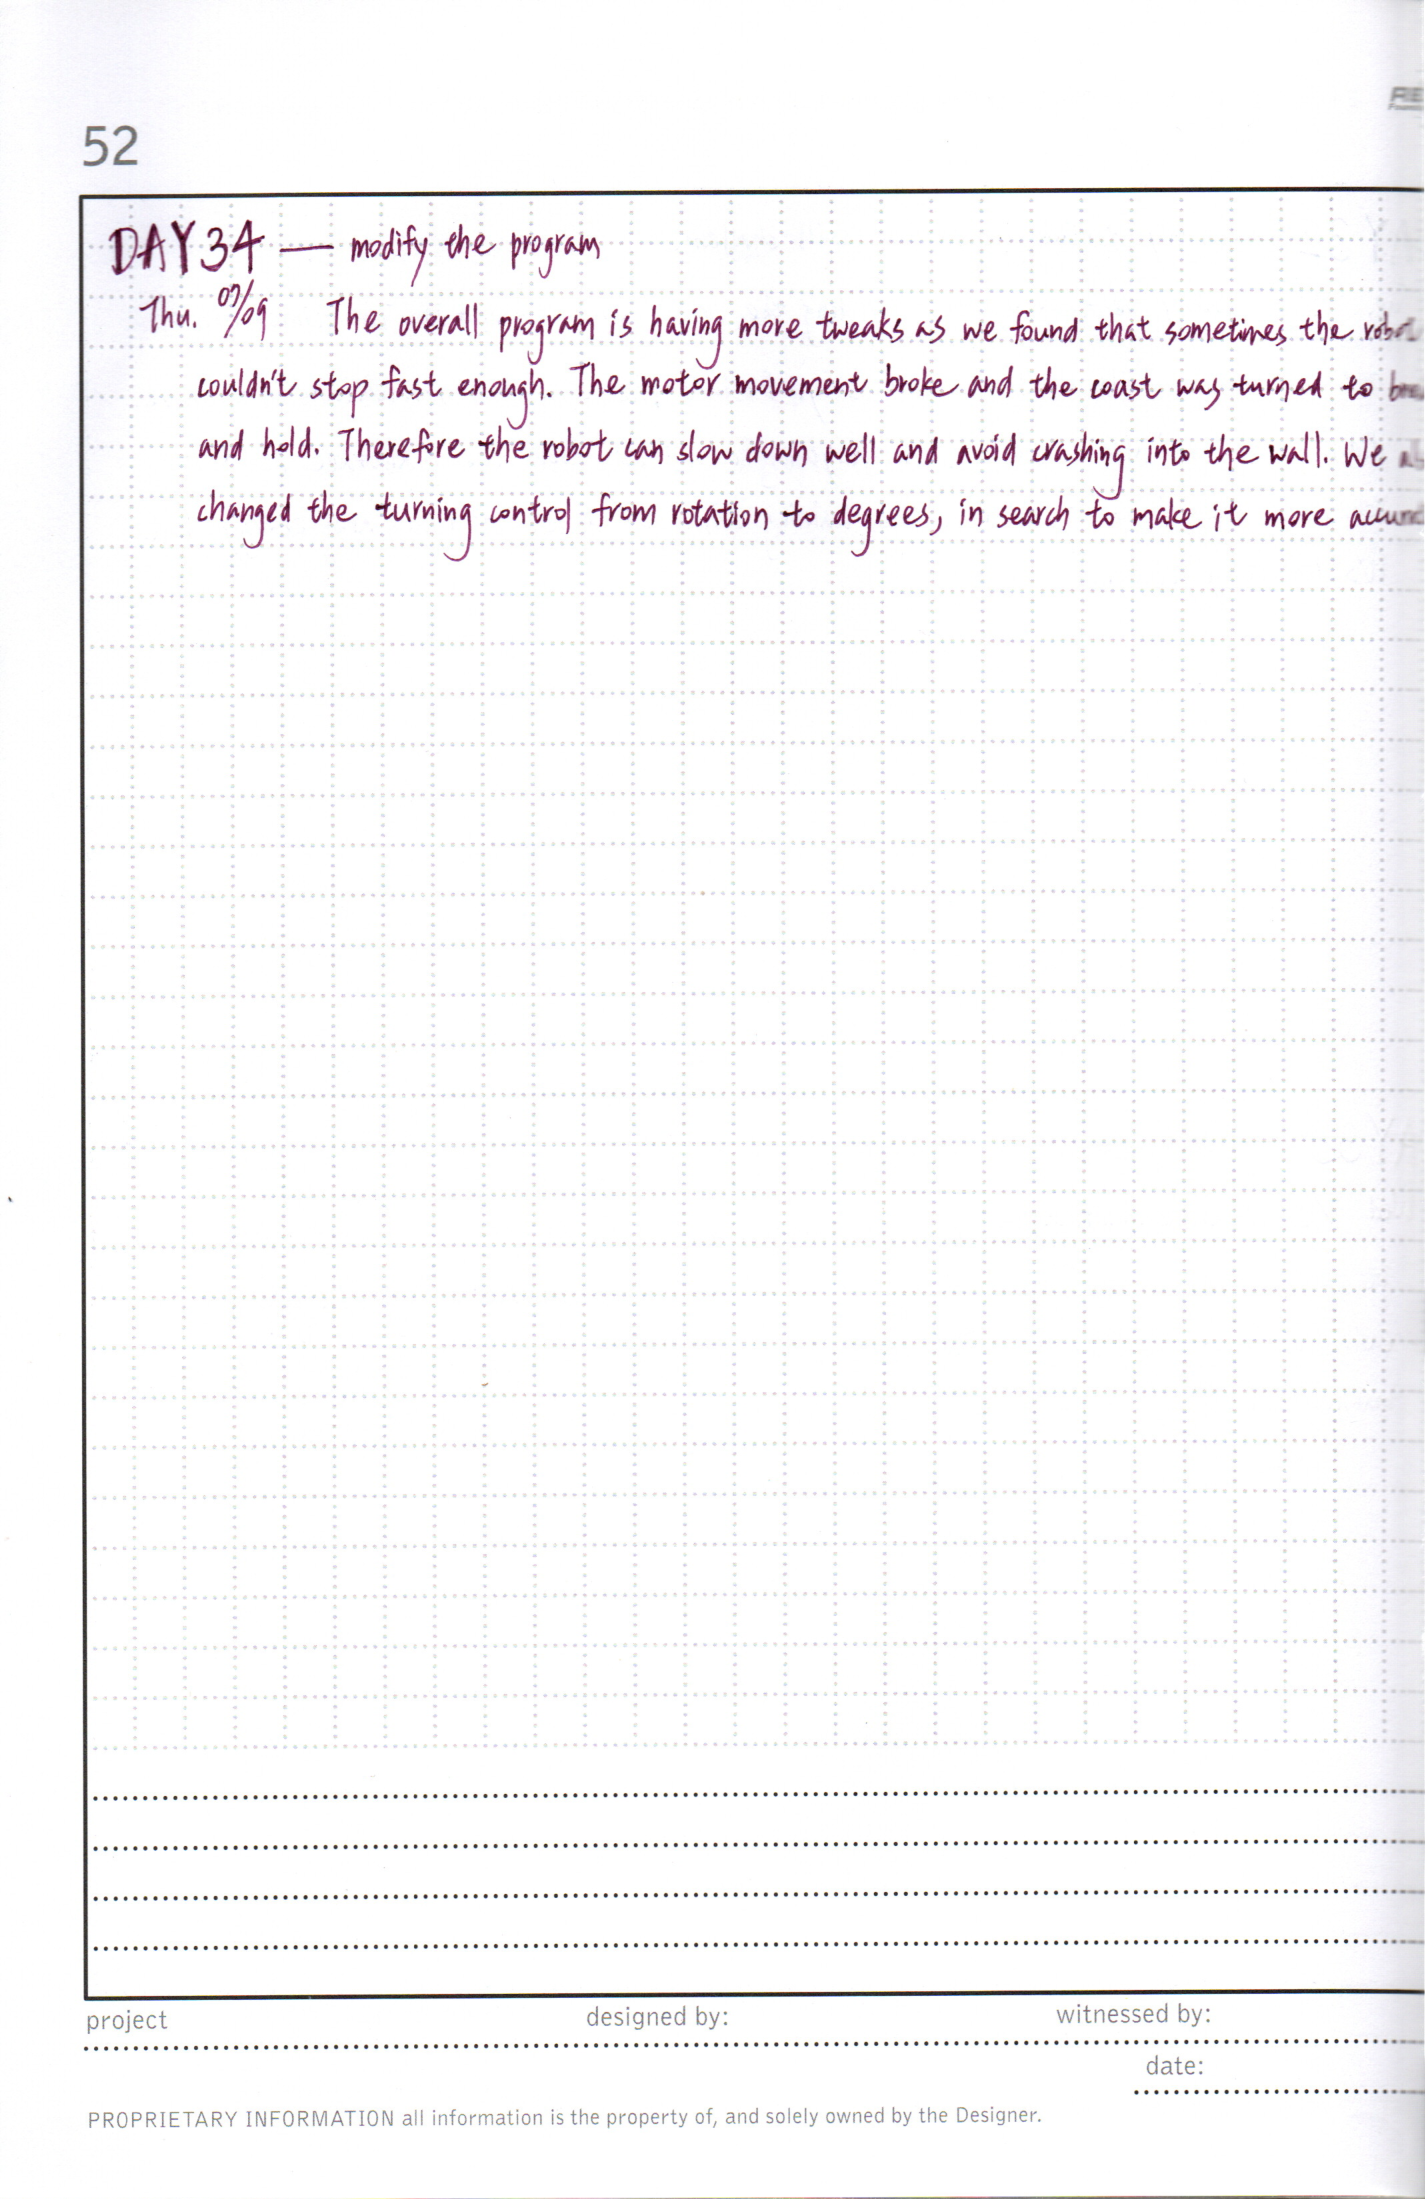 52
DAY 34 — modify the program
Thu. 07/09 The overall program is having more tweaks as we found that sometimes the robot
couldn't stop fast enough. The motor movement broke and the coast was turned to
and hold. Therefore the robot can slow down well and avoid crashing into the wall. We
changed the turning control from rotation to degrees, in search to make it more
project designed by: witnessed by:
date:
PROPRIETARY INFORMATION all information is the property of, and solely owned by the Designer.